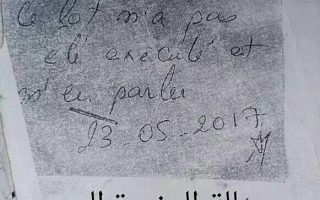 Ce lot n'a pas
été executé et
m'en parler
23-05-2017